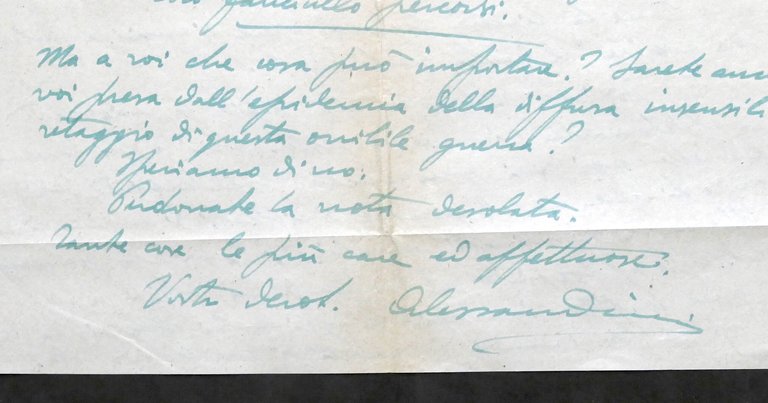 fanciullo percorsi.
Ma a voi che cosa può importare? Sarete anc
voi presa dall'epidemia della diffusa insensili
retaggio di questa orribile guerra?
Speriamo di no.
Perdonate la nota desolata.
Tante cose le più care ed affettuose.
Vostr devot. Alessandrini